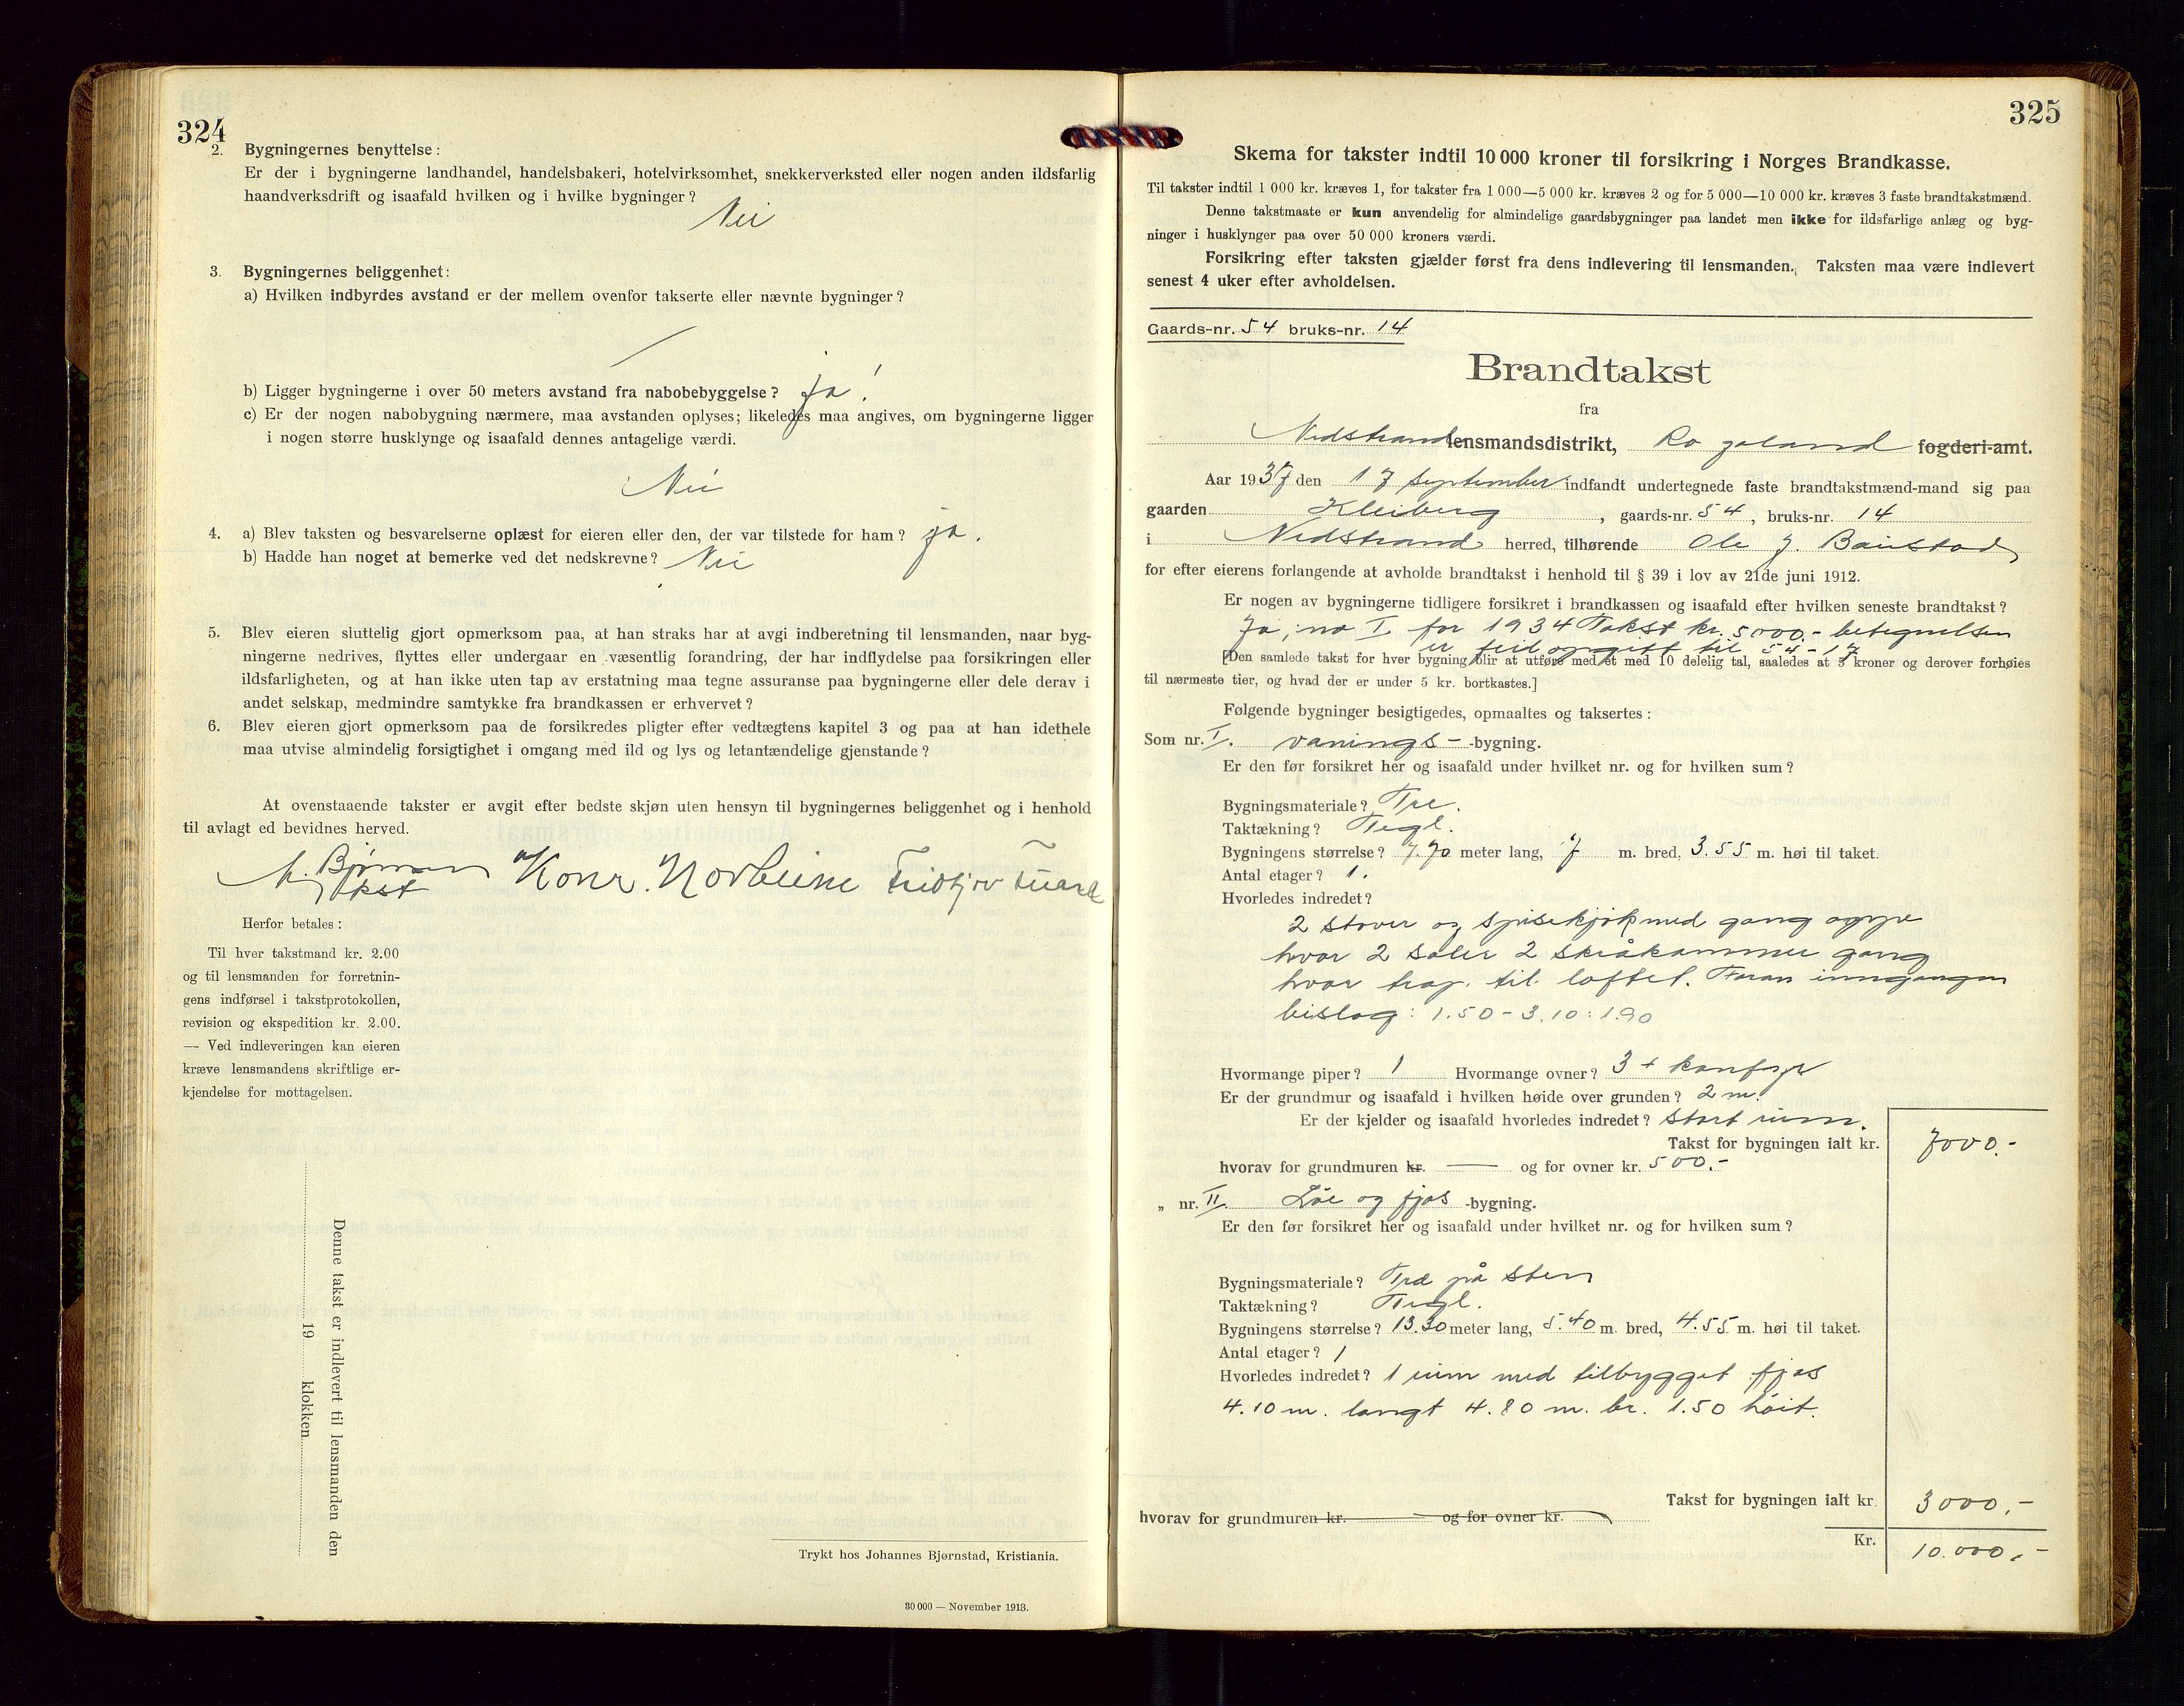 324
2. Bygningernes benyttelse:
Er der i bygningerne landhandel, handelsbakeri, hotelvirksomhet, snekkerverksted eller nogen anden ildsfarlig
haandverksdrift og isaafald hvilken og i hvilke bygninger?
Nei
3. Bygningernes beliggenhet:
a) Hvilken indbyrdes avstand er der mellem ovenfor takserte eller nævnte bygninger?
b) Ligger bygningerne i over 50 meters avstand fra nabobebyggelse? ja!
c) Er der nogen nabobygning nærmere, maa avstanden oplyses; likeledes maa angives, om bygningerne ligger
i nogen større husklynge og isaafald dennes antagelige værdi.
Nei
4. a) Blev taksten og besvarelserne oplæst for eieren eller den, der var tilstede for ham? ja.
b) Hadde han noget at bemerke ved det nedskrevne? Nei
5. Blev eieren sluttelig gjort opmerksom paa, at han straks har at avgi indberetning til lensmanden, naar byg-
ningerne nedrives, flyttes eller undergaar en væsentlig forandring, der har indflydelse paa forsikringen eller
ildsfarligheten, og at han ikke uten tap av erstatning maa tegne assuranse paa bygningerne eller dele derav i
andet selskap, medmindre samtykke fra brandkassen er erhvervet?
6. Blev eieren gjort opmerksom paa de forsikredes pligter efter vedtægtens kapitel 3 og paa at han idethele
maa utvise almindelig forsigtighet i omgang med ild og lys og letantændelige gjenstande?
At ovenstaaende takster er avgit efter bedste skjøn uten hensyn til bygningernes beliggenhet og i henhold
til avlagt ed bevidnes herved.
Konr. Norheim
Herfor betales:
Til hver takstmand kr. 2.00
og til lensmanden for forretnin-
gens indførsel i takstprotokollen,
revision og ekspedition kr. 2.00.
— Ved indleveringen kan eieren
kræve lensmandens skriftlige er-
kjendelse for mottagelsen.
Denne takst er indlevert til lensmanden den
19 klokken
Trykt hos Johannes Bjørnstad, Kristiania.
30 000 — November 1913.
325
Skema for takster indtil 10 000 kroner til forsikring i Norges Brandkasse.
Til takster indtil 1 000 kr. kræves 1, for takster fra 1 000—5 000 kr. kræves 2 og for 5 000—10 000 kr. kræves 3 faste brandtakstmænd.
Denne takstmaate er kun anvendelig for almindelige gaardsbygninger paa landet men ikke for ildsfarlige anlæg og byg-
ninger i husklynger paa over 50 000 kroners værdi.
Forsikring efter taksten gjælder først fra dens indlevering til lensmanden. Taksten maa være indlevert
senest 4 uker efter avholdelsen.
Gaards-nr. 54 bruks-nr. 14
Brandtakst
fra
Nedstrand lensmandsdistrikt, Rogaland fogderi-amt.
Aar 1937 den 17 september indfandt undertegnede faste brandtakstmænd-mand sig paa
gaarden Kleiberg, gaards-nr. 54, bruks-nr. 14
i Nedstrand herred, tilhørende Ole J. Baustad
for efter eierens forlangende at avholde brandtakst i henhold til § 39 i lov av 21de juni 1912.
Er nogen av bygningerne tidligere forsikret i brandkassen og isaafald efter hvilken seneste brandtakst?
Ja, no I for 1934 Takst kr. 5000.- betegnelsen
er feil opgitt til 54-17
[Den samlede takst for hver bygning blir at utføre med et med 10 delelig tal, saaledes at 5 kroner og derover forhøies
til nærmeste tier, og hvad der er under 5 kr. bortkastes.]
Følgende bygninger besigtigedes, opmaaltes og taksertes:
Som nr. I. vanings- -bygning.
Er den før forsikret her og isaafald under hvilket nr. og for hvilken sum?
Bygningsmateriale? Tre.
Taktækning? Tegl.
Bygningens størrelse? 7.70 meter lang, 7 m. bred, 3.55 m. høi til taket.
Antal etager? 1.
Hvorledes indredet?
2 stover og spisekjøk med gang
hvor 2 saler 2 skråkammer gang
hvor trap. til loftet. Foran inngangen
bislag: 1.50-3.10:1.90
Hvormange piper? 1 Hvormange ovner? 3 + komfyr
Er der grundmur og isaafald i hvilken høide over grunden? 2 m.
Er der kjelder og isaafald hvorledes indredet? Stort rum.
Takst for bygningen ialt kr. 7000.-
hvorav for grundmuren kr. — og for ovner kr. 500.-
„ nr. II. Løe og fjøs -bygning.
Er den før forsikret her og isaafald under hvilket nr. og for hvilken sum?
Bygningsmateriale? Tre på sten
Taktækning? Tegl.
Bygningens størrelse? 13.30 meter lang, 5.40 m. bred, 4.55 m. høi til taket.
Antal etager? 1
Hvorledes indredet? 1 rum med tilbygget fjøs
4.10 m. langt 4.80 m. br. 1.50 høit.
Takst for bygningen ialt kr. 3000.-
hvorav for grundmuren kr. og for ovner kr.
Kr. 10.000.-